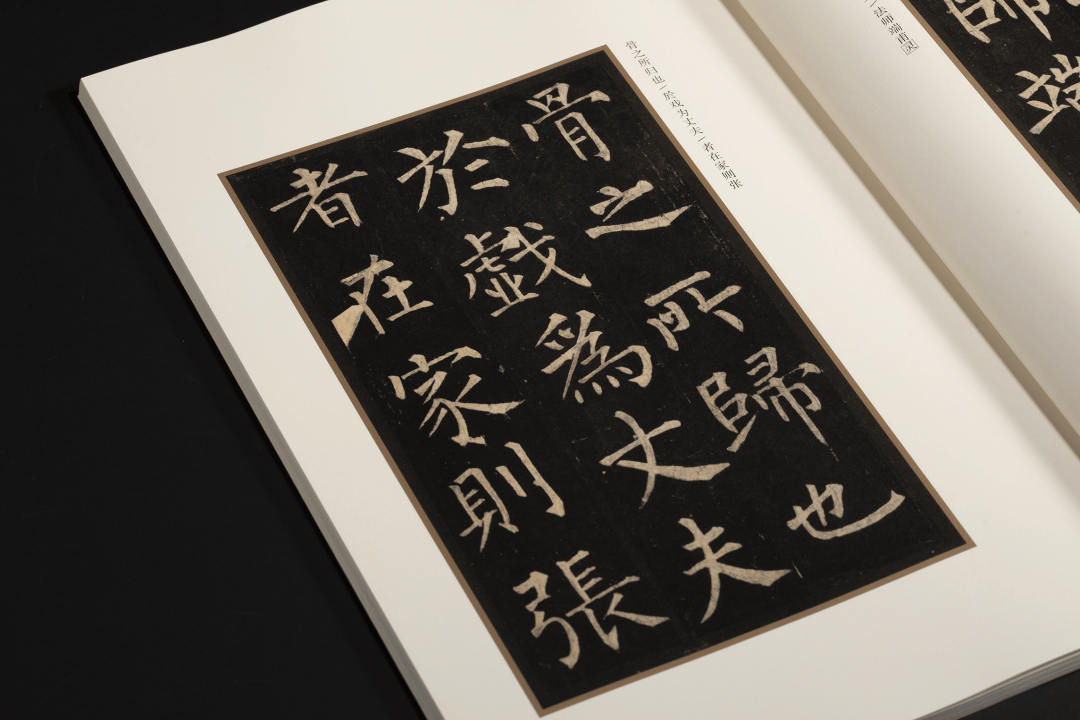 法师端甫灵
師
端
骨之所归也/於戏为丈夫/者在家则张
骨之所歸也
於戲為丈夫
者在家則張